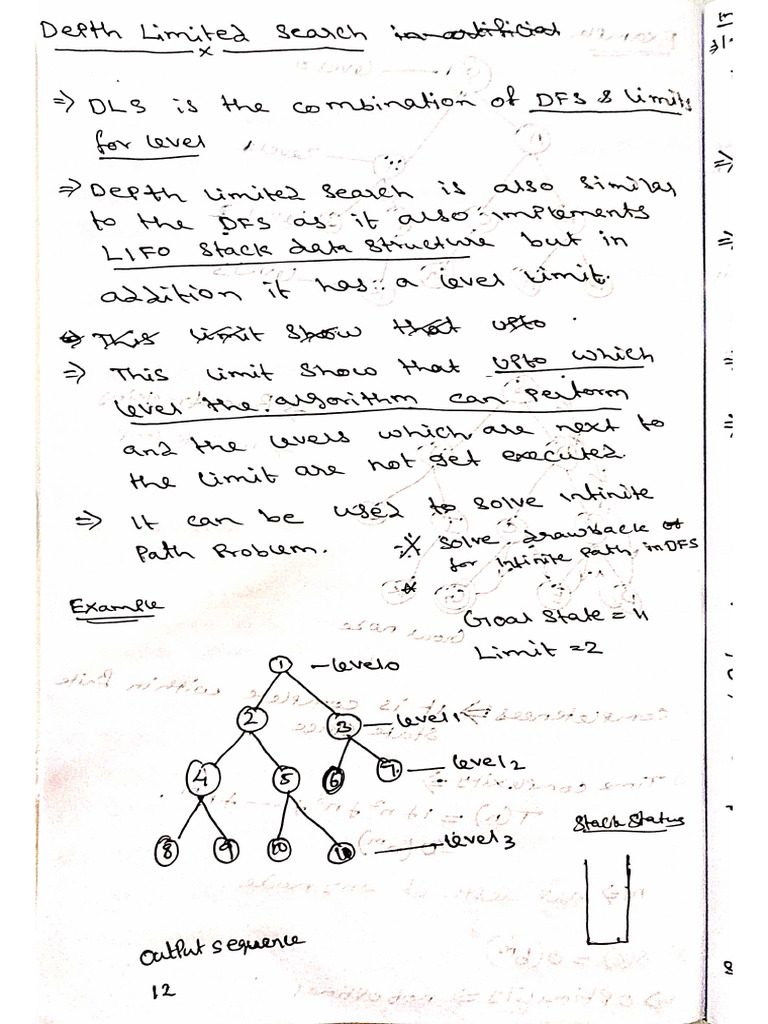 Depth Limited Search in artificial
x
⇒ DLS is the combination of DFS & limits
for level
⇒ Depth Limited Search is also similar
to the DFS as it also implements
LIFO Stack data structure but in
addition it has a level limit.
⇒ This limit show that upto
⇒ This limit show that upto which
level the algorithm can perform
and the levels which are next to
the limit are not get executed.
⇒ It can be used to solve infinite
Path Problem.
⇒ solve drawback of
for infinite path in DFS
Example
Goal State = 11
Limit = 2
1 - level 0
2 3 - level 1
4 5 6 7 - level 2
8 9 10 11 - level 3
Stack Status
Output sequence
12